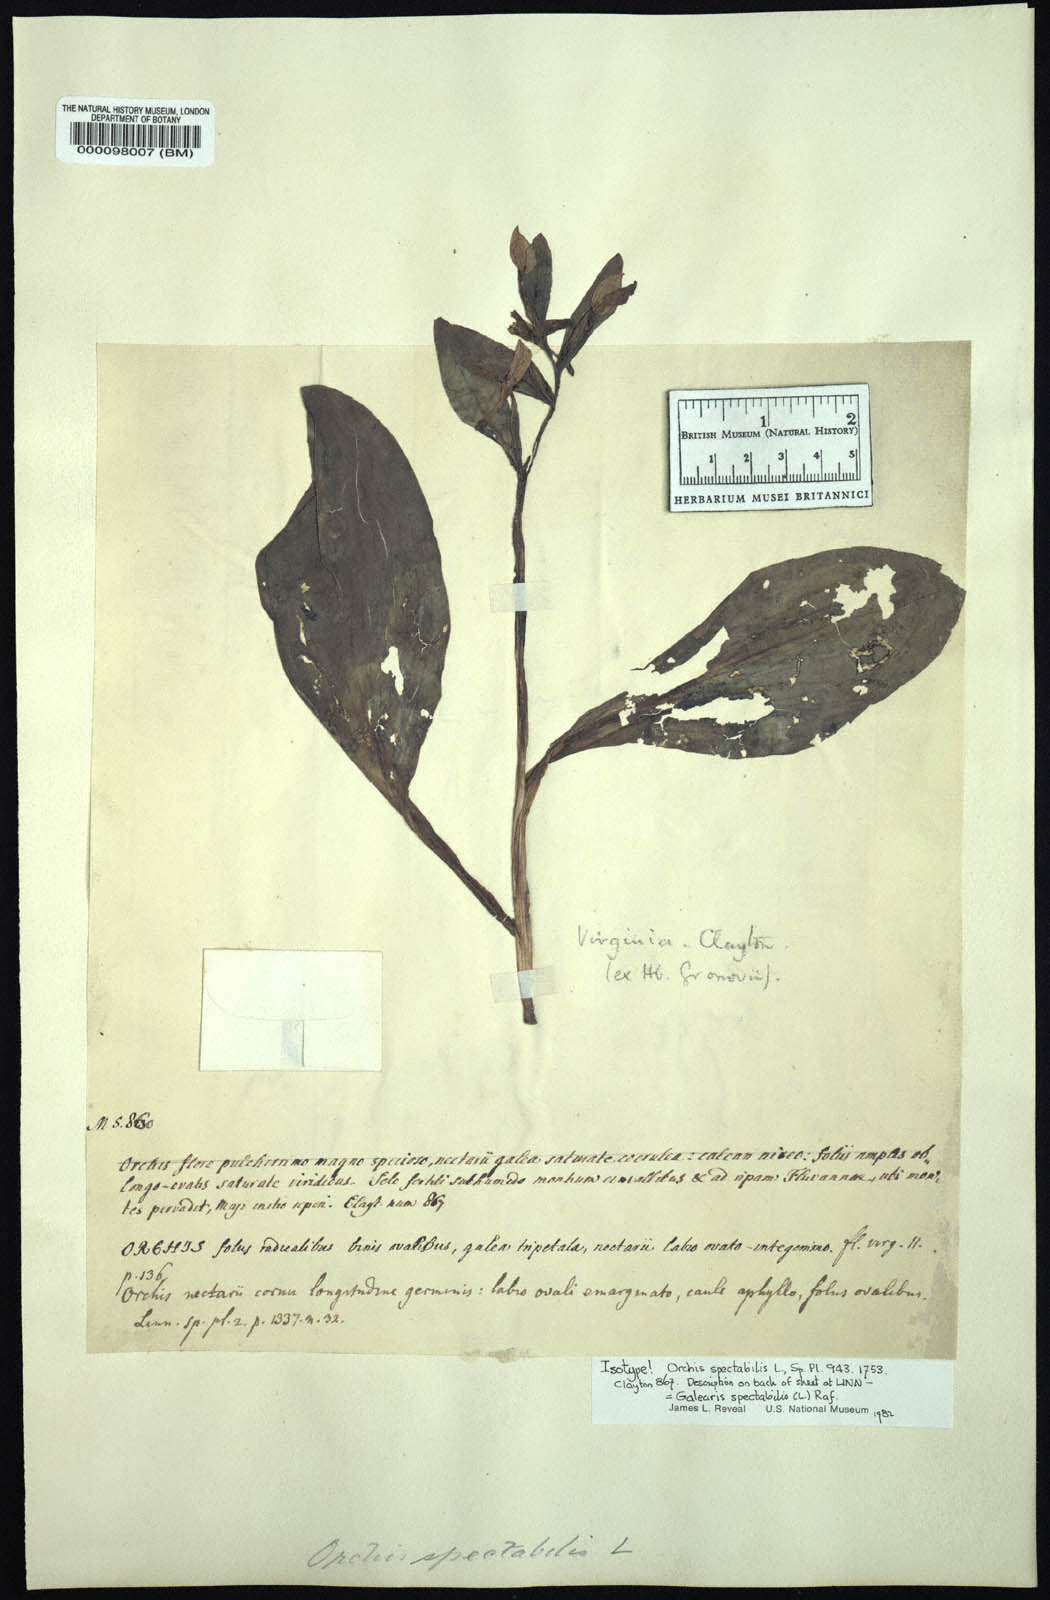 THE NATURAL HISTORY MUSEUM, LONDON
DEPARTMENT OF BOTANY
000098007 (BM)
1 2
BRITISH MUSEUM (NATURAL HISTORY)
1 2 3 4 5
HERBARIUM MUSEI BRITANNICI
Virginia - Clayton.
(ex Hb. Gronovii).
Orchis flore pulcherrimo magno specioso, nectarii galea saturate coerulea: calcari niveo: foliis amplis ob-
longo-ovatis saturate viridibus. Solo fertili subhumido montium convallibus & ad ripam Fluvannae, ubi mon-
tes pervadit, Majo initio reperi. Clayt. num 867
ORCHIS foliis radicalibus binis ovalibus, galea tripetala, nectarii labio ovato-integerrimo. fl. virg. II.
p. 136
Orchis nectarii cornu longitudine germinis: labio ovali emarginato, caule aphyllo, foliis ovalibus.
Linn. sp. pl. 2. p. 1337. n. 32.
Isotype! Orchis spectabilis L., Sp. Pl. 943. 1753.
Clayton 867. Description on back of sheet at LINN -
= Galearis spectabilis (L.) Raf.
James L. Reveal U.S. National Museum 1982
Orchis spectabilis L